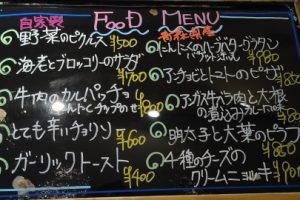 自家製 FOOD MENU
野菜のピクルス ¥500
海老とブロッコリーのサラダ ¥700
牛肉のカルパッチョ
チップのせ ¥800
とても辛いチョリソー ¥600
ガーリックトースト ¥400
青森県産
にんにくのハーブバターグラタン
バケット ¥980
アンチョビとトマトのピザ
アンガス牛バラ肉と大根
の煮込み
明太子と大葉のピラフ
4種のチーズの
クリームニョッキ